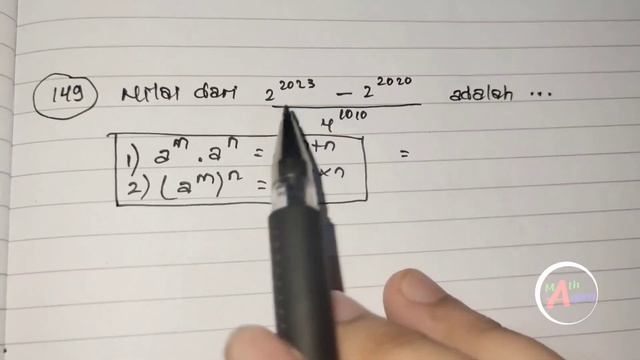 149 Nilai dari 2^2023 - 2^2020 / 4^1010 adalah ...
1) a^m . a^n = +n =
2) (a^m)^n = ×n
Math